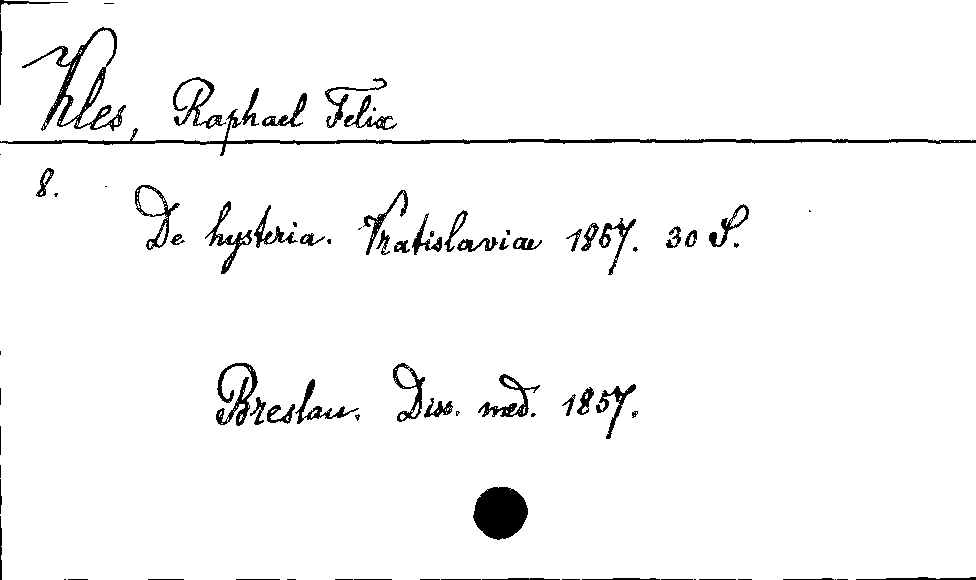 Kles, Raphael Felix
8.
De hysteria. Vratislaviae 1857. 30 S.
Breslau. Diss. med. 1857.